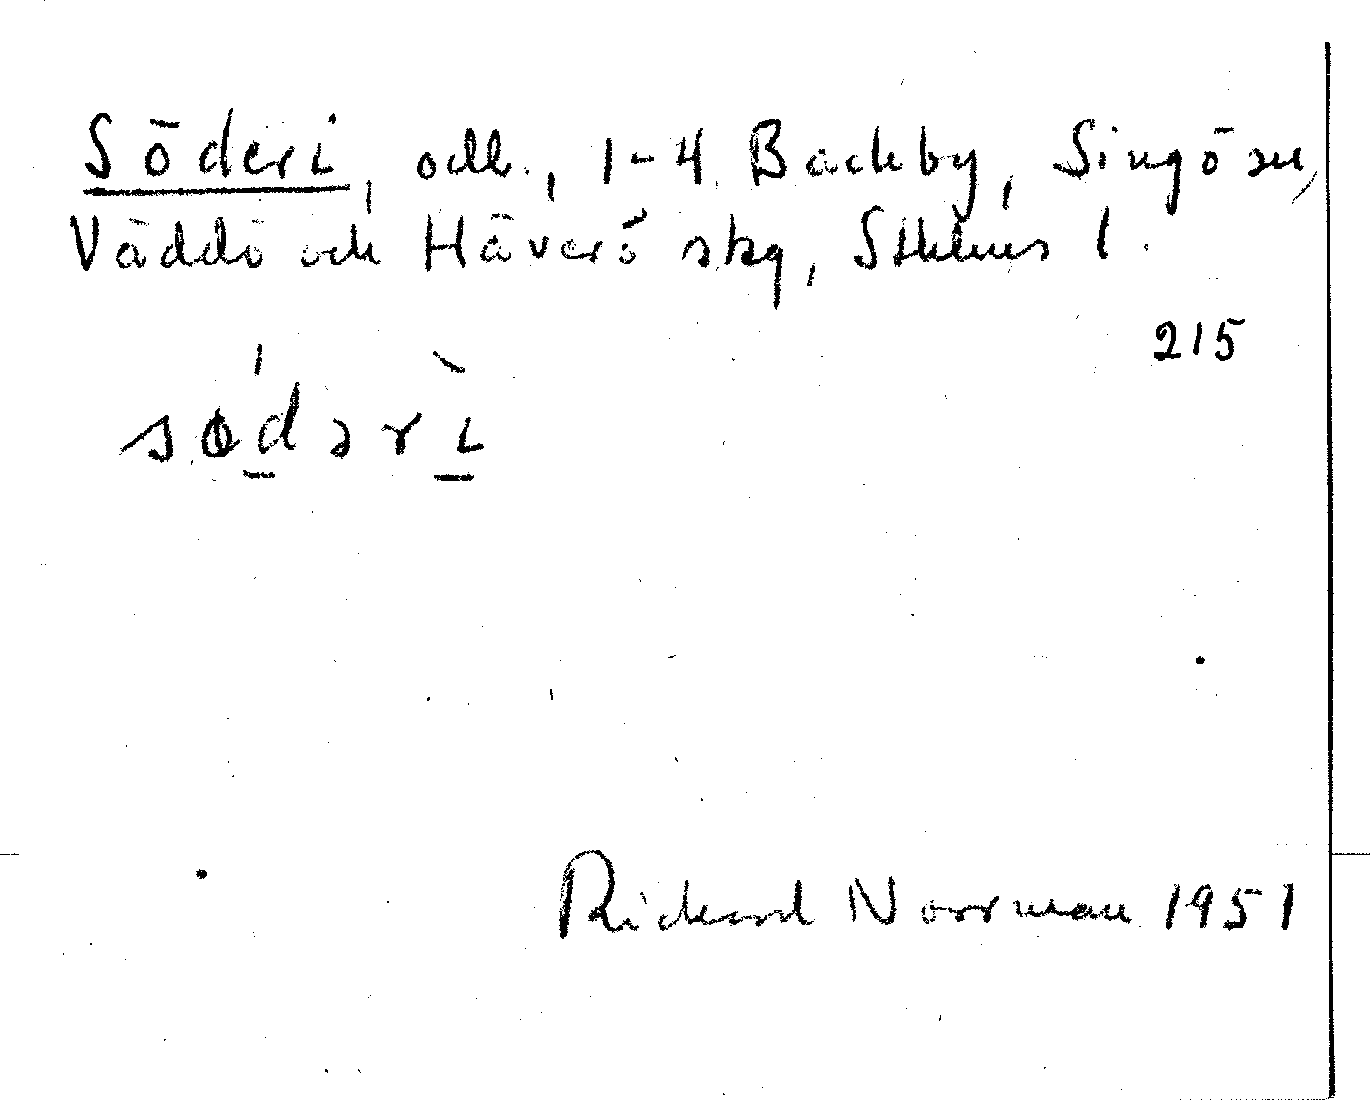 Söderi, odl., 1-4 Backby, Singö sn,
Väddö och Häverö skg, Sthlms l.
215
sødəri
Rickard Norrman 1951